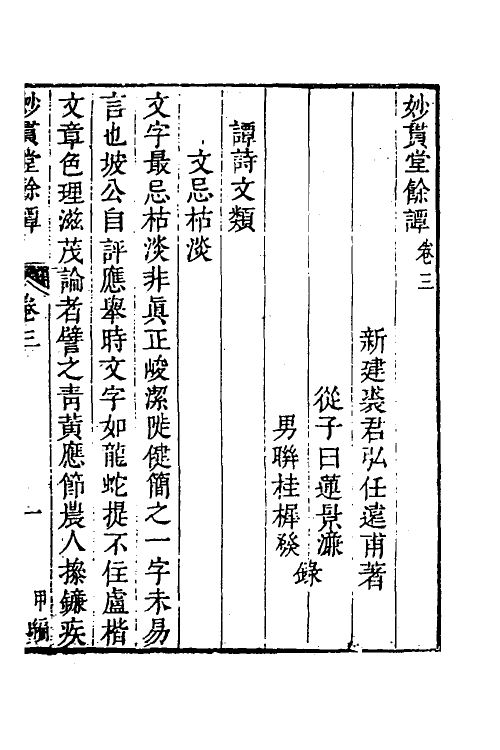 妙貫堂餘譚 卷三
新建裘君弘任遠甫著
從子曰蓮景濂
男聨桂樨發
錄
譚詩文類
文忌枯淡
文字最忌枯淡非眞正峻潔陡健簡之一字未易
言也坡公自評應舉時文字如龍蛇捉不住盧楷
文章色理滋茂論者譬之靑黃應節農人操鐮疾
妙貫堂餘譚
卷三
一
甲編